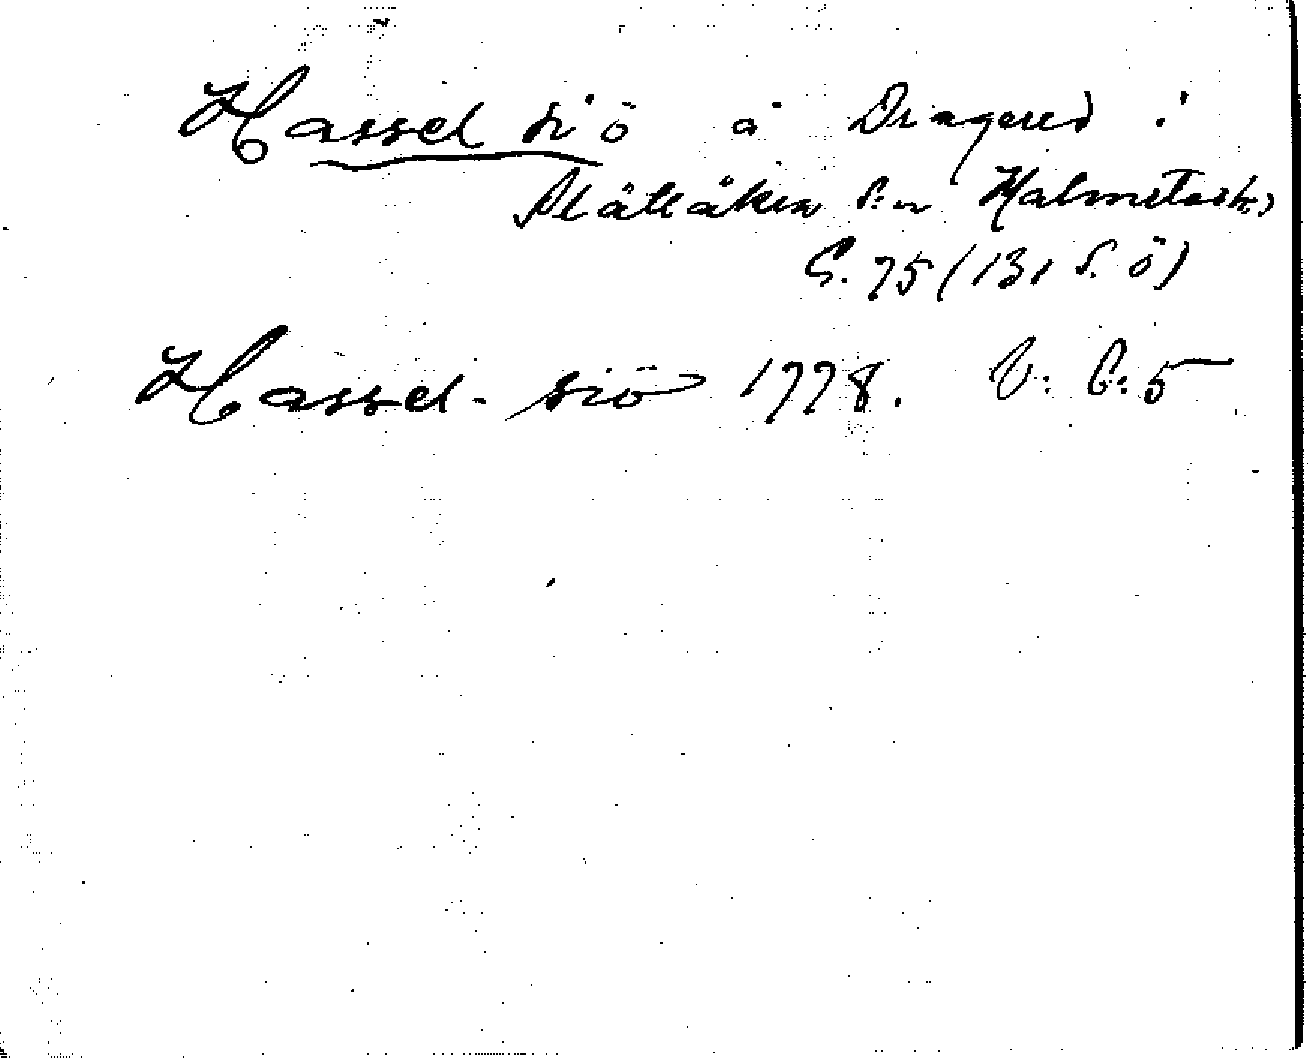 Hassel siö å Dragered i
Slättåkra S:n Halmstads h.
G. 75 (131 S. ö)
Hassel-siö 1778. V: G: 5